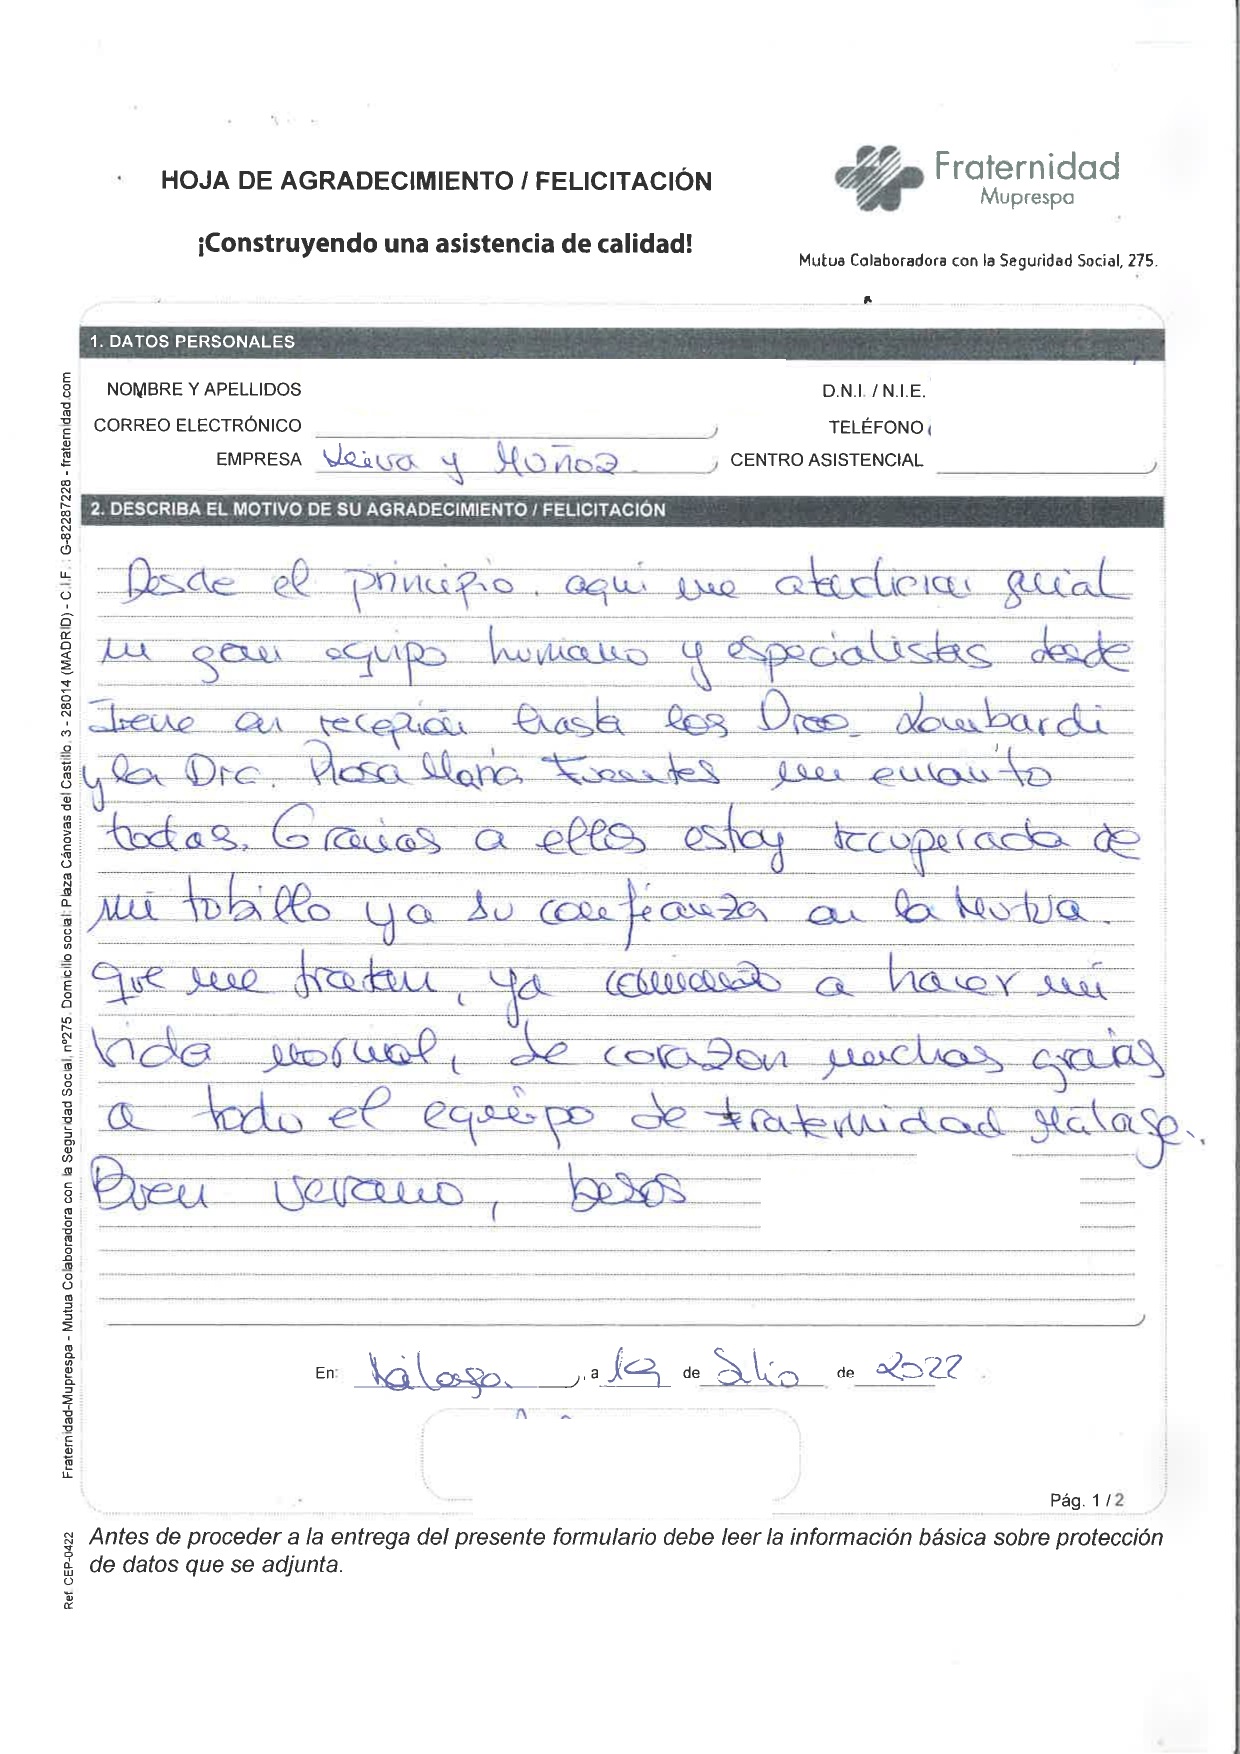 HOJA DE AGRADECIMIENTO / FELICITACIÓN
¡Construyendo una asistencia de calidad!
Fraternidad
Muprespa
Mutua Colaboradora con la Seguridad Social, 275.
1. DATOS PERSONALES
NOMBRE Y APELLIDOS
D.N.I. / N.I.E.
CORREO ELECTRÓNICO
TELÉFONO
EMPRESA Leiva y Muñoz
CENTRO ASISTENCIAL
2. DESCRIBA EL MOTIVO DE SU AGRADECIMIENTO / FELICITACIÓN
Desde el principio. aquí me genial
un gran equipo humano y especialistas desde
Irene en recepción hasta los Lombardi
y la Dra. Rosa María Fuentes me
todas. Gracias a ellos estoy recuperada de
mi tobillo y a su confianza en la Mutua.
que me traten, ya a hacer mi
vida normal, de corazon muchas gracias
a todo el equipo de fraternidad Málaga.
Buen verano, besos
En: Málaga, a 19 de Julio de 2022
Pág. 1 / 2
Antes de proceder a la entrega del presente formulario debe leer la información básica sobre protección
de datos que se adjunta.
Fraternidad-Muprespa - Mutua Colaboradora con la Seguridad Social, nº275. Domicilio social: Plaza Cánovas del Castillo, 3 - 28014 (MADRID) - C.I.F. : G-82287228 - fraternidad.com
Ref. CEP-0422